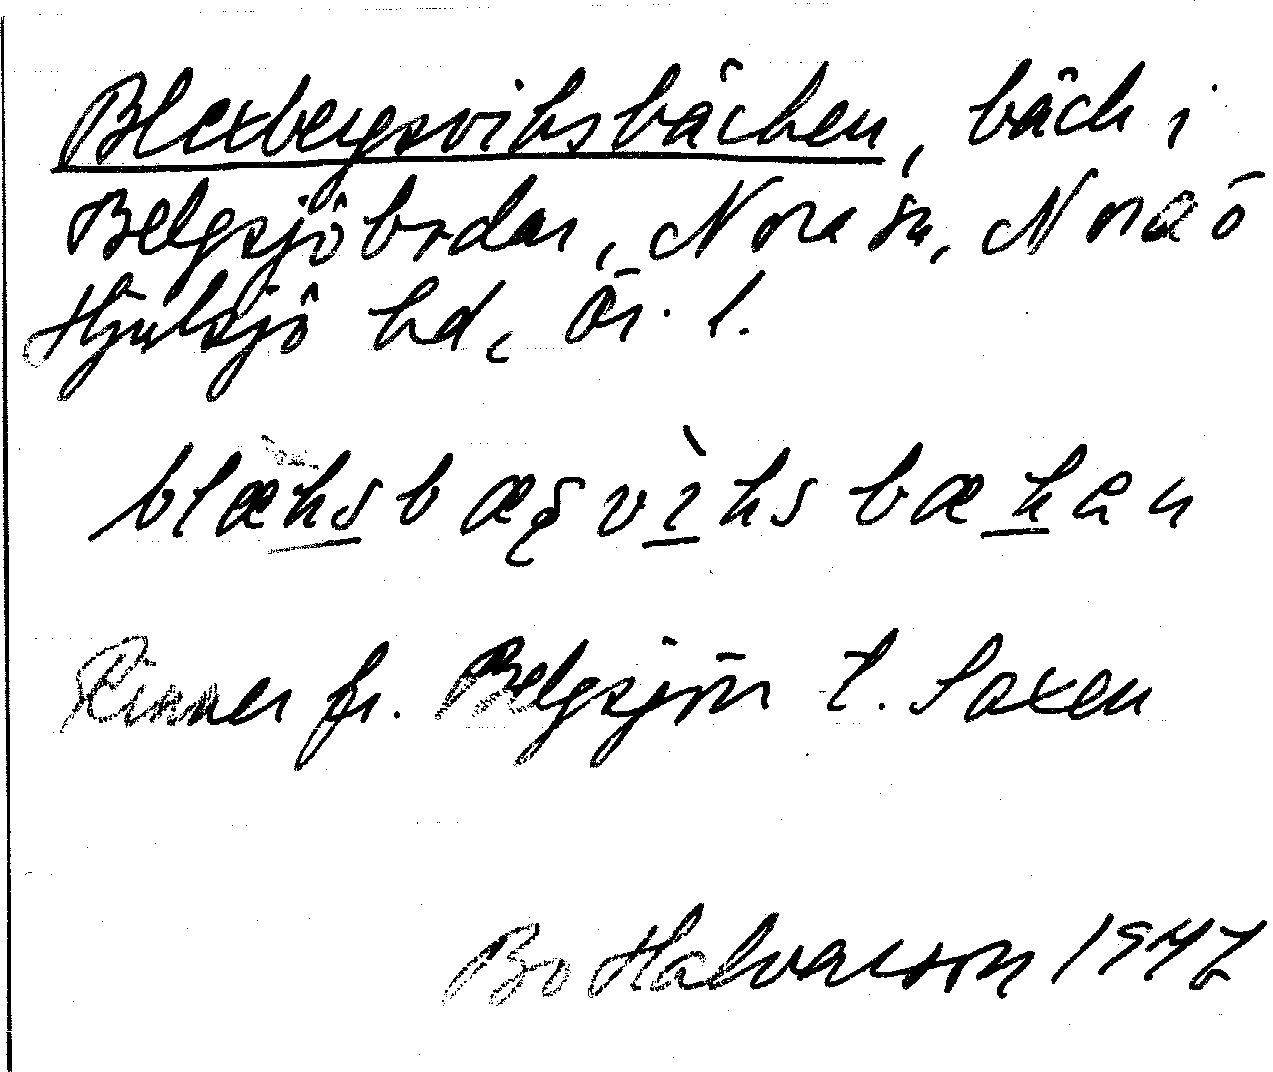 Blexbergsviksbäcken, bäck i
Belgsjöbrdar, Nora sn, Nora o
Hjulsjö hd, Ör. l.
blæksbæʂvìksbækan
Rinner fr. Belgsjön t. Saxen
Bo Halvarson 1947